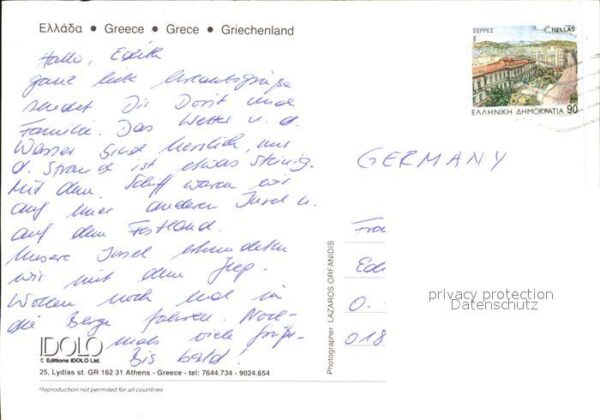 Ελλάδα • Greece • Grece • Griechenland
Hallo, Edith
ganz liebe Urlaubsgrüße
sendet Dir Dorit und
Familie. Das Wetter u. d.
Wasser sind herrlich, nur
d. Strand ist etwas steinig.
Mit dem Schiff waren wir
auf einer anderen Insel u.
auf dem Festland.
Unsere Insel erkundeten
wir mit dem Jeep.
Wollen noch mal in
die Berge fahren. Noch-
mals viele Grüße
Bis bald!
ΣΕΡΡΕΣ
HELLAS
ΕΛΛΗΝΙΚΗ ΔΗΜΟΚΡΑΤΙΑ 90
GERMANY
Fra
Edi
O.
018
privacy protection
Datenschutz
Photographer LAZAROS ORFANIDIS
IDOLO
© Editions IDOLO Ltd.
25, Lydias st. GR 162 31 Athens - Greece - tel: 7644.734 - 9024.654
Reproduction not permited for all countries